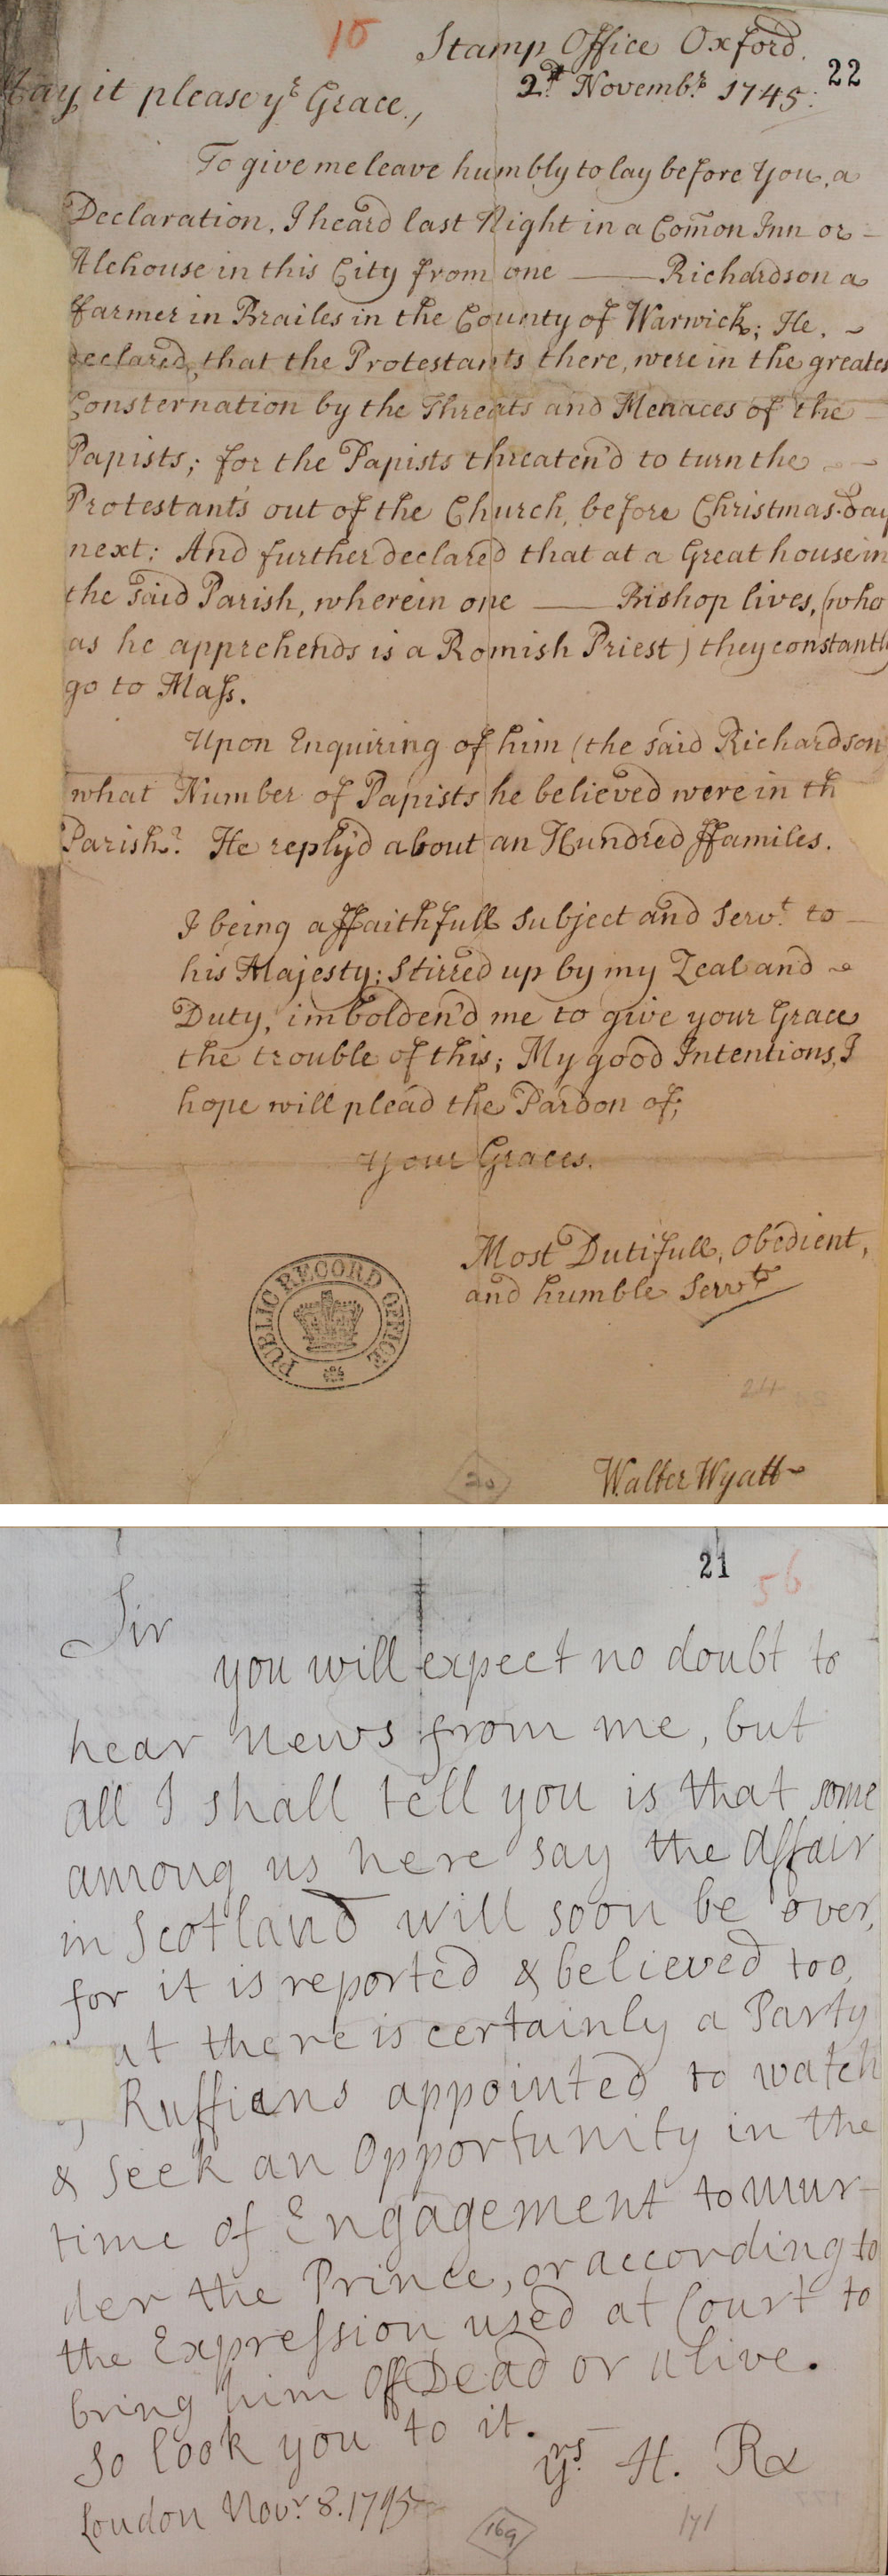 10
Stamp Office Oxford.
22
2d Novembr. 1745.
May it please yr Grace.,
To give me leave humbly to lay before You, a
Declaration, I heard last Night in a Com̄on Inn or
Alehouse in this City from one —— Richardson a
ffarmer in Brailes in the County of Warwick; He,
declared, that the Protestants there, were in the greates
Consternation by the Threats and Menaces of the
Papists; for the Papists threaten'd to turn the
Protestants out of the Church, before Christmas-Day
next; And further declared that at a Great house in
the said Parish, wherein one —— Bishop lives, (who
as he apprehends is a Romish Priest) they constantly
go to Mass.
Upon Enquiring of him (the said Richardson
what Number of Papists he believed were in th
Parish? He reply'd about an Hundred ffamiles.
I being a ffaithfull Subject and Servt. to
his Majesty; Stirred up by my Zeal and
Duty, imbolden'd me to give your Grace
the trouble of this; My good Intentions, I
hope will plead the Pardon of;
Your Graces.
Most Dutifull, Obedient,
and humble Servt
PUBLIC RECORD OFFICE
24
20
Walter Wyatt
21
56
Sir
you will expect no doubt to
hear news from me, but
all I shall tell you is that some
among us here say the Affair
in Scotland will soon be over,
for it is reported & believed too,
at there is certainly a Party
Ruffians appointed to watch
& Seek an Opportunity in the
time of Engagement to mur-
der the Prince, or according to
the Expression used at Court to
bring him Off Dead or alive.
So look you to it.
yrs. H. Rx
London Novr. 8. 1745
169
171